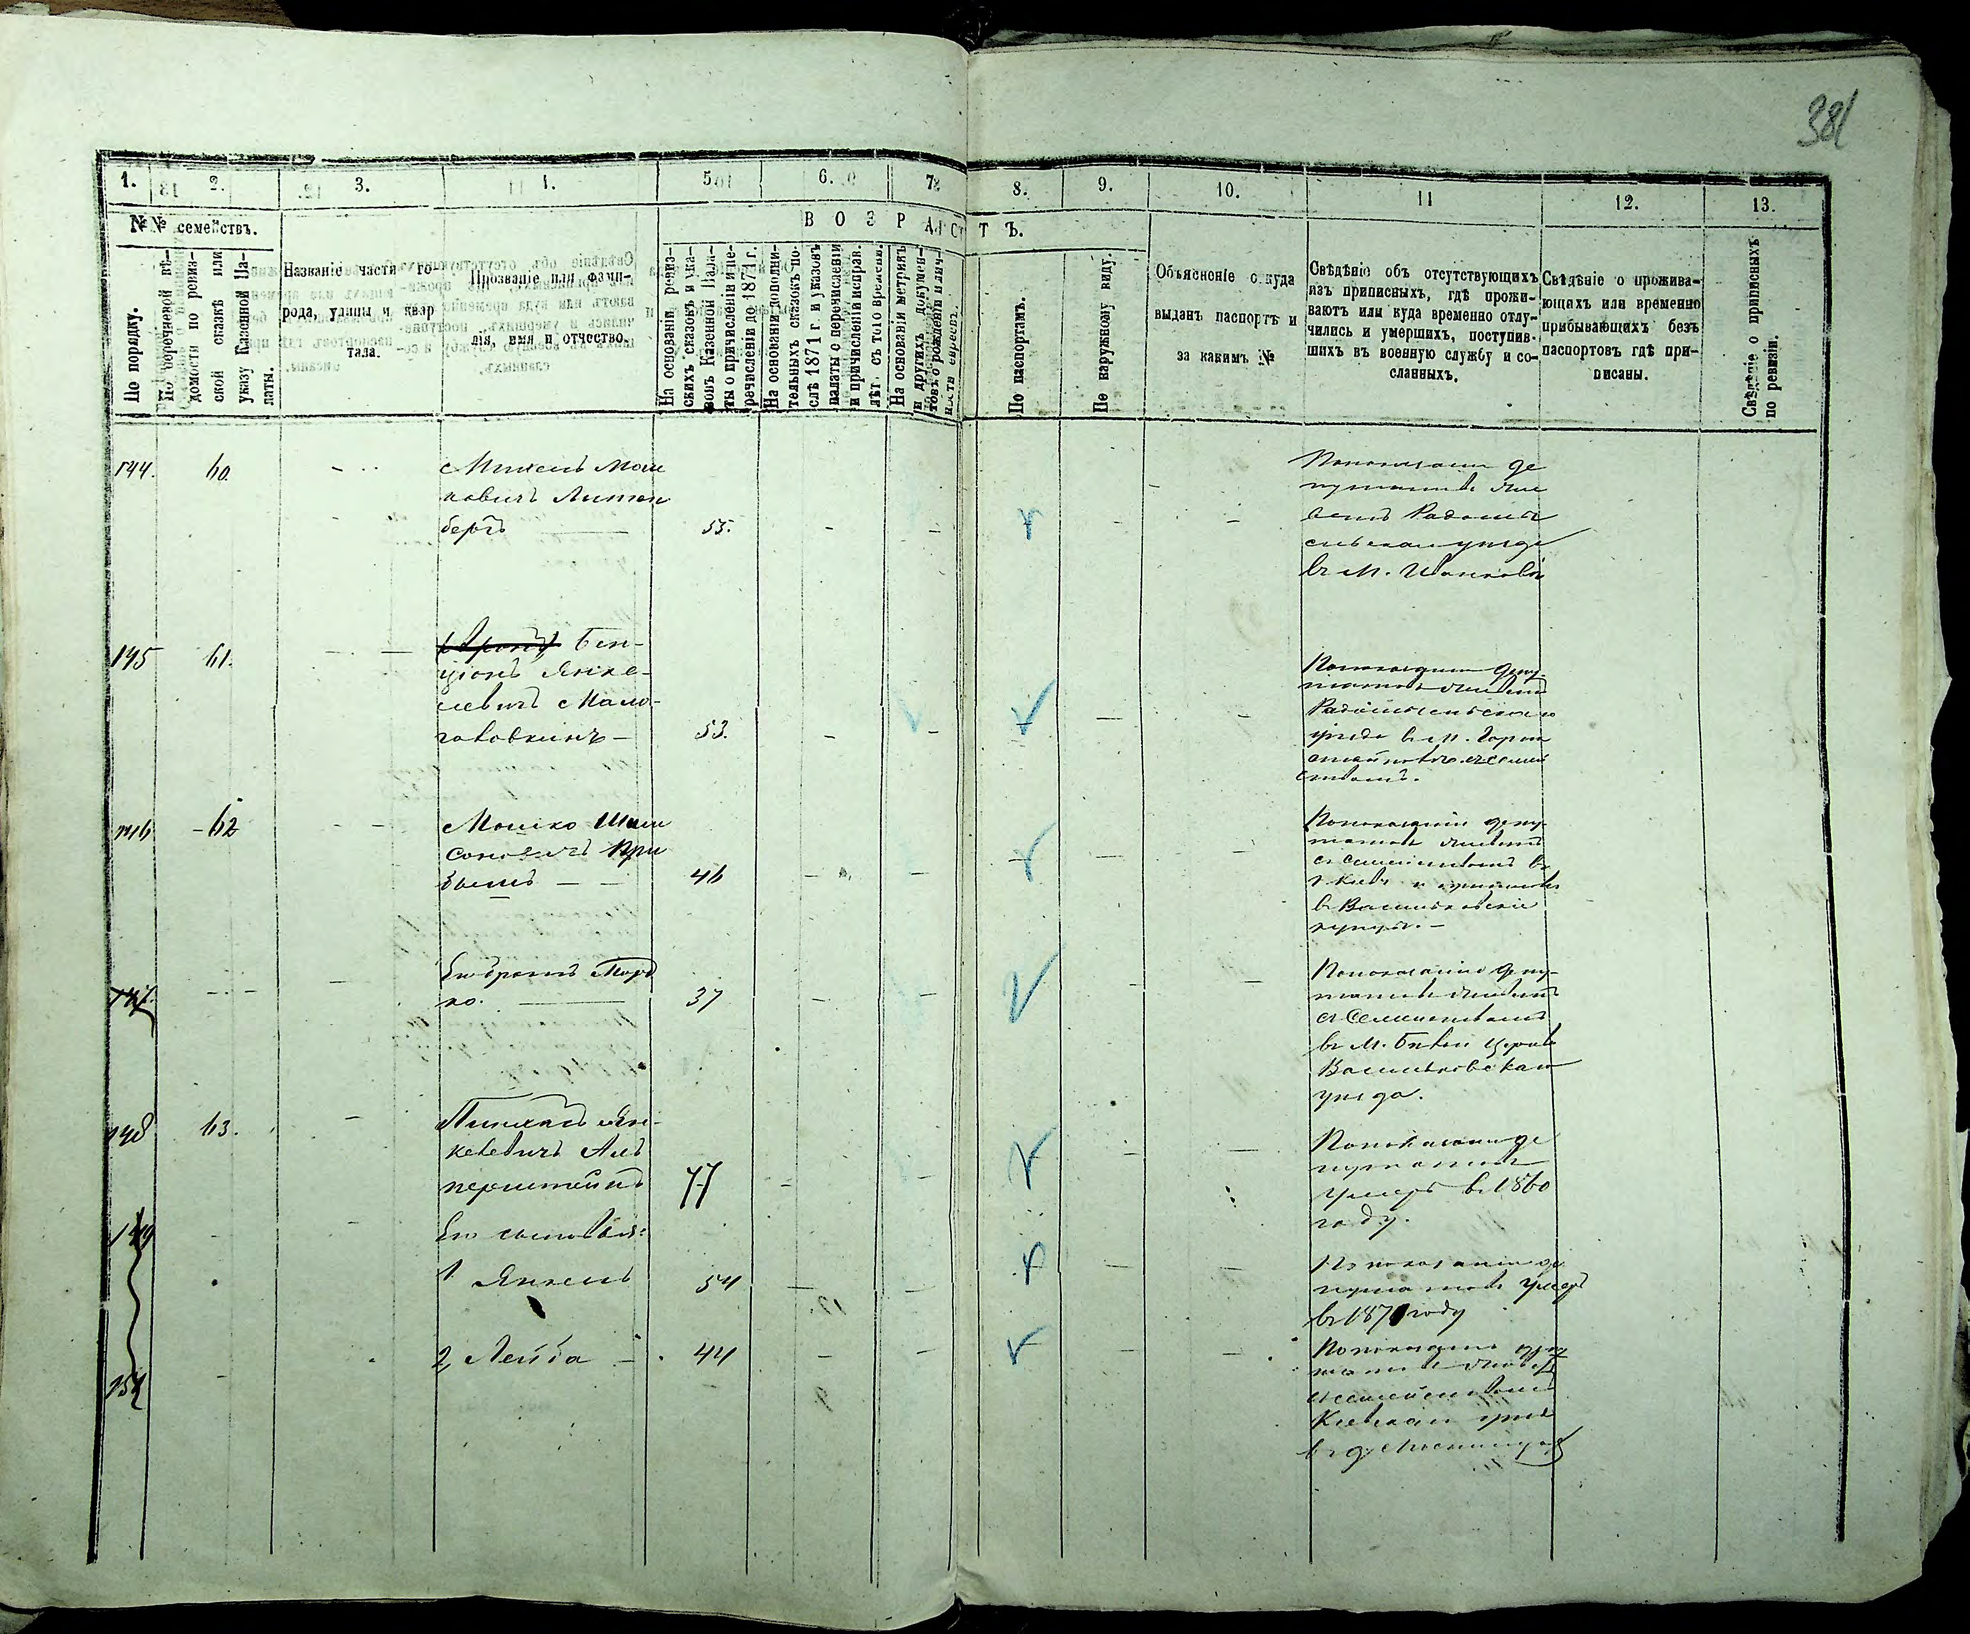 381
1. 2. 3. 4. 5. 6. 7. 8. 9. 10. 11 12. 13.
№№ семействъ.
По порядку.
По перечневой вѣ-
домости по ревиз-
ской сказкѣ или
указу Казенной Па-
латы.
Названіе части го-
рода, улицы и квар
тала.
Прозваніе или фами-
лія, имя и отчество.
ВОЗРАСТЪ.
На основаніи ревиз-
скихъ сказокъ и ука-
зовъ Казенной Пала-
ты о причисленіи и пе-
речисленіи до 1871 г.
На основаніи дополни-
тельныхъ сказокъ по-
слѣ 1871 г. и указовъ
палаты о перечисленіи
и причисленіи исправ.
лѣт. съ того времени.
На основаніи метрикъ
и другихъ докумен-
товъ о рожденіи и лич-
ности евреевъ.
По паспортамъ.
По наружному виду.
Объясненіе о куда
выданъ паспортъ и
за какимъ №
Свѣдѣніе объ отсутствующихъ
изъ приписныхъ, гдѣ прожи-
ваютъ или куда временно отлу-
чились и умершихъ, поступив-
шихъ въ военную службу и со-
сланныхъ.
Свѣдѣніе о прожива-
ющихъ или временно
прибывающихъ безъ
паспортовъ гдѣ при-
писаны.
Свѣдѣніе о приписныхъ
по ревизіи.
144. 60.
Мошковичъ
бергъ 55.
въ м. Иванковѣ
145 61.
Бен-
ціонъ Янке-
левичъ Мало-
головкинъ 53.
Показанію депу-
татовъ живетъ
Радомысльскаго
уѣзда въ м. Горно-
стайполѣ съ семей
ствомъ.
146 62
Мошко Шим
соновичъ При
46
Показанію депу-
татовъ живетъ
съ семействомъ въ
г. Кіевѣ и приписанъ
въ Васильковскіе
купцы.
147.
Его братъ Морд
ко. 37
Показанію депу-
татовъ живетъ
съ семействомъ
въ м. Бѣлой Церкви
Васильковскаго
уѣзда.
148 63.
Пинхасъ Ян-
келевичъ Аль
перштейнъ 77
Показанію де
путатовъ
умеръ въ 1860
году.
149
Его сыновья:
1 Янкель 54
По показанію де
путатовъ умеръ
въ 1871 году
2, Лейба 44
Показанію депу
татовъ живетъ
съ семействомъ
Кіевскаго уѣзда